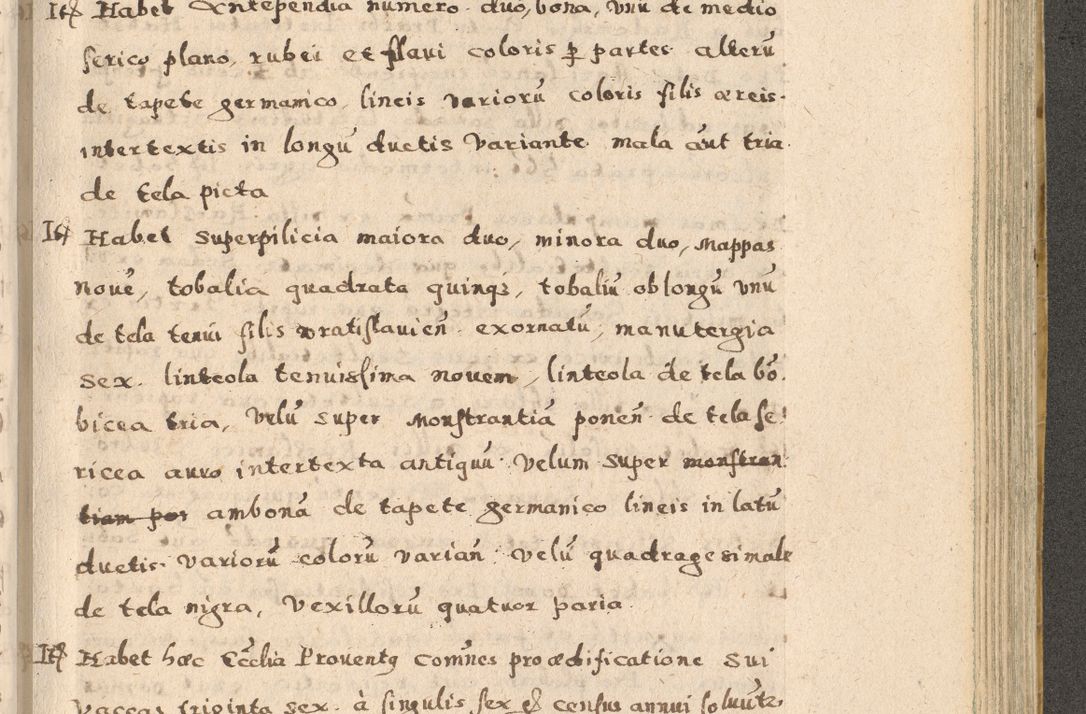 Itē Habet Antependia numero duo, bona, vnū de medio
serico plano, rubei et flaui coloris ꝑ partes alterū
de tapete germanico, lineis variorū coloris filis æreis
intertextis in longū ductis variante mala aūt tria
de tela picta
Itē Habet Superpilicia maiora duo, minora duo, Mappas
nouē, tobalia quadrata quinqꝫ, tobaliū oblongū vnū
de tela tenui filis vratislauien̄ exornatū, manutergia
sex. linteola tenuissima novem, linteola de tela bō
bicea tria, velū super Monstrantiā ponen̄ de tela se
ricea auro intertexta antiquū velum super monstran
tiam por ambonā de tapete germanico lineis in latū
ductis variorū colorū varian̄ velū quadragesimale
de tela nigra, vexillorū quatuor paria
Itē Habet hæc Ecclīa Prouentꝯ com̄nes pro ædificatione sui
Vaccas triginta sex. à singulis sex gͬ census annui soluūt